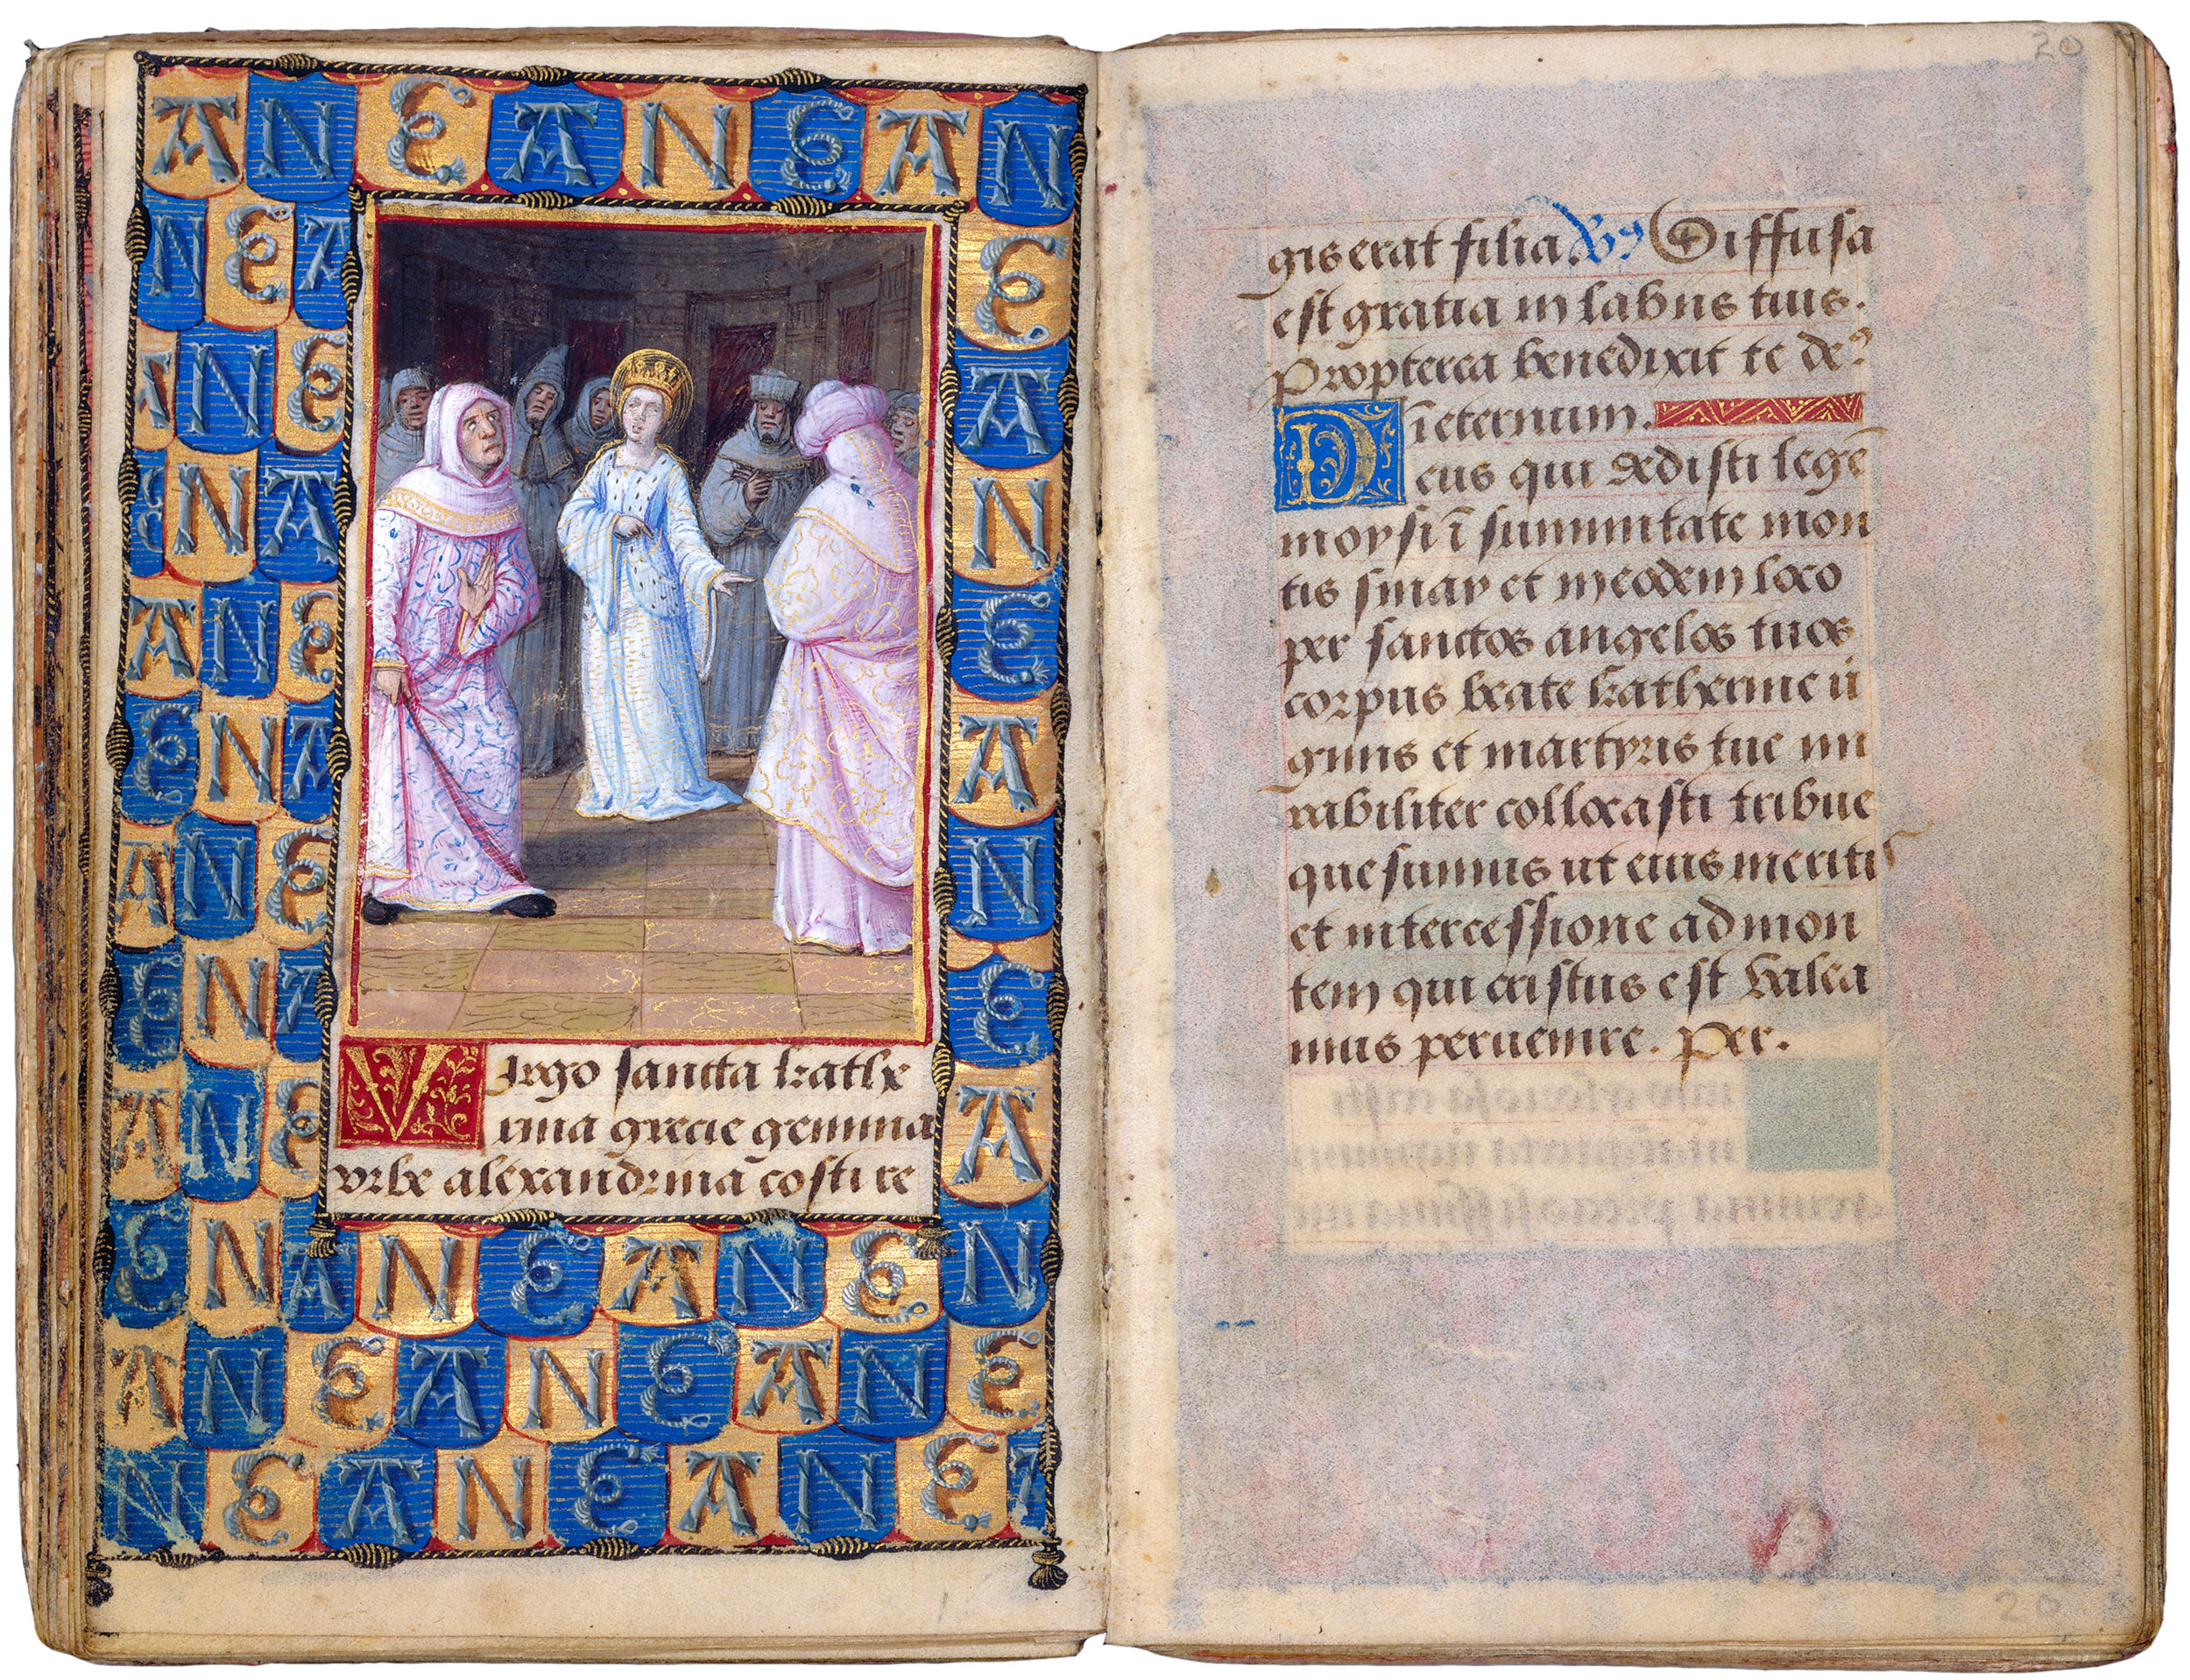 A N E A N E A N
N E A
E
A N E
A
E N A
N
A N E
E
E N A
A
A N E
N
E N A
E
A N E
A
E N A N E A N E N
A N E A N E A N E
N E A N E A N E A
Virgo sancta kathe
rina grecie gemma
vrbe alexandrina costi re
20
gis erat filia ℣ Diffusa
est gratia in labiis tuis.
Propterea benedixit te deꝰ
ī eternum.
Deus qui dedisti legē
moysi ī summitate mon
tis sinay et in eodem loco
per sanctos angelos tuos
corpus beate katherine ui
ginis et martyris tue mi
rabiliter collocasti tribue
quesumus ut eius meritis
et intercessione ad mon
tem qui cristus est valea
mus peruenire. Per.
20